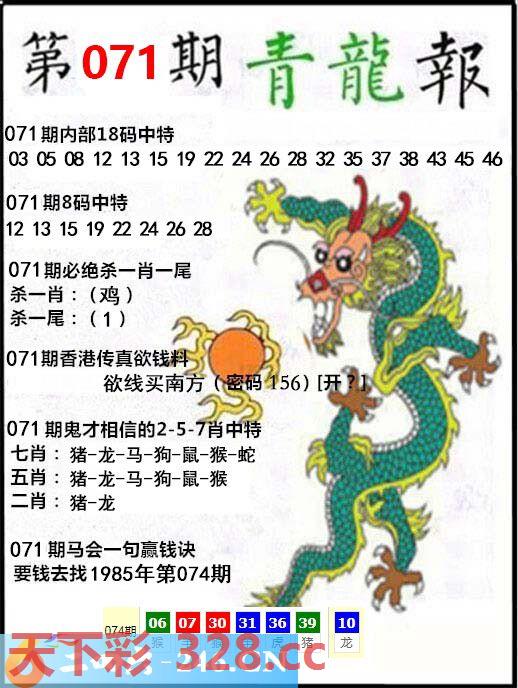 第071期青龍報
071期内部18码中特
03 05 08 12 13 15 19 22 24 26 28 32 35 37 38 43 45 46
071期8码中特
12 13 15 19 22 24 26 28
071期必绝杀一肖一尾
杀一肖：（鸡）
杀一尾：（1）
071期香港传真欲钱料
欲线买南方（密码 156）[开？]
071期鬼才相信的2-5-7肖中特
七肖：猪-龙-马-狗-鼠-猴-蛇
五肖：猪-龙-马-狗-鼠-猴
二肖：猪-龙
071期马会一句赢钱诀
要钱去找1985年第074期
074期 06 07 30 31 36 39 10
猴 羊 猴 羊 虎 猪 龙
天下彩-328.cc